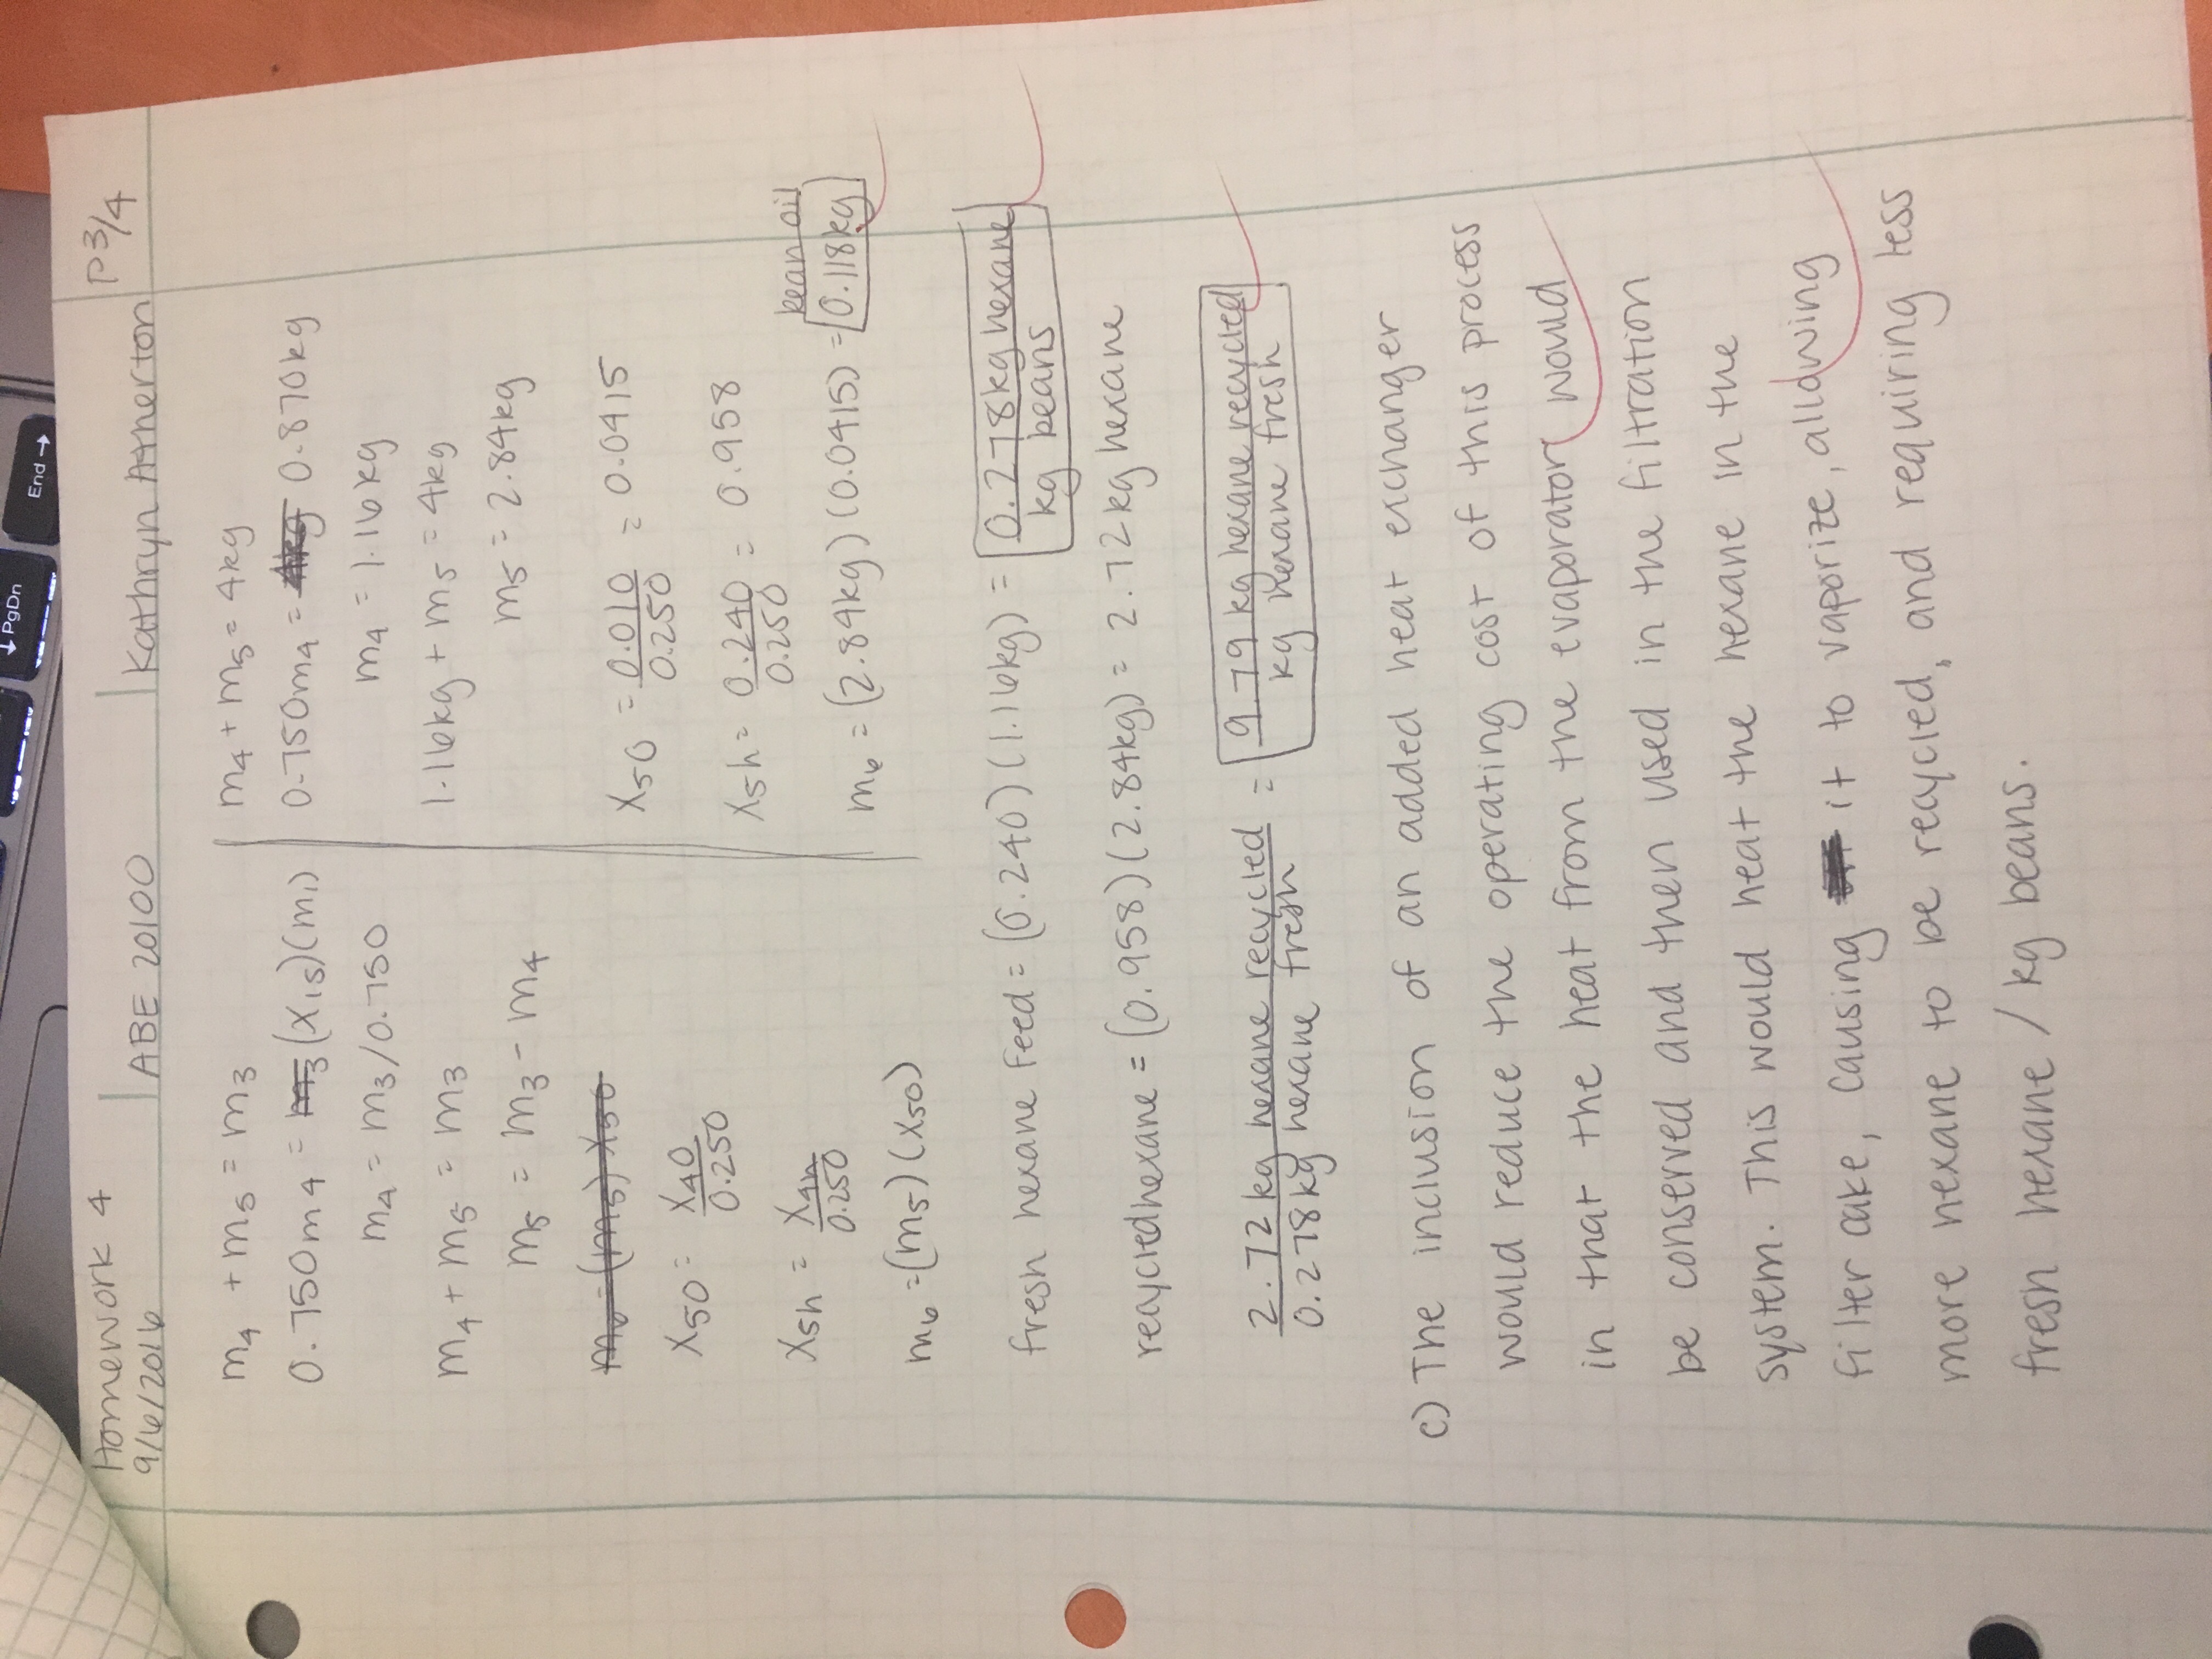 ↓ PgDn
End →
Homework 4
9/6/2016
ABE 20100
Kathryn Atherton
P3/4
m₄ + m₅ = m₃
0.750m₄ = m₃ (X₁ₛ)(m₁)
m₄ = m₃/0.750
m₄ + m₅ = m₃
m₅ = m₃ - m₄
m₆ = (m₅) X₅₀
X₅₀ = X₄₀/0.250
X₅h = X₄h/0.250
m₆ = (m₅)(X₅₀)
m₄ + m₅ = 4kg
0.750m₄ = 4kg 0.870kg
m₄ = 1.16kg
1.16kg + m₅ = 4kg
m₅ = 2.84kg
X₅₀ = 0.010/0.250 = 0.0415
X₅h = 0.240/0.250 = 0.958
bean oil
m₆ = (2.84kg)(0.0415) = 0.118kg
fresh hexane feed = (0.240)(1.16kg) = 0.278kg hexane/kg beans
recycled hexane = (0.958)(2.84kg) = 2.72kg hexane
2.72kg hexane recycled/0.278kg hexane fresh = 9.79 kg hexane recycled/kg hexane fresh
c) The inclusion of an added heat exchanger
would reduce the operating cost of this process
in that the heat from the evaporator would
be conserved and then used in the filtration
system. This would heat the hexane in the
filter cake, causing it to vaporize, allowing
more hexane to be recycled, and requiring less
fresh hexane / kg beans.